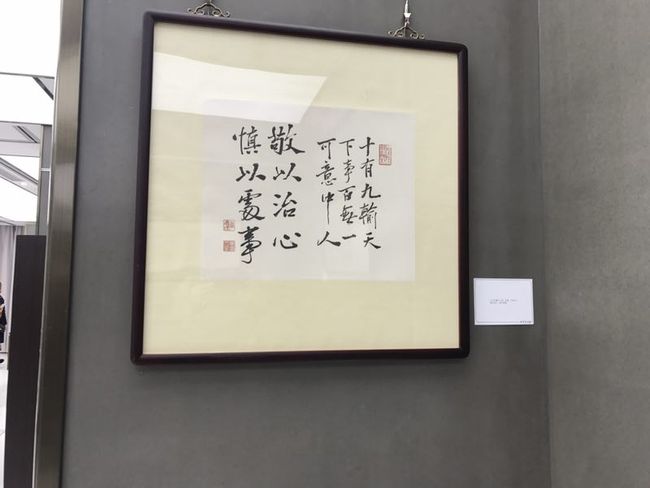 十有九輸天
下事百無一
可意中人
敬以治心
慎以處事